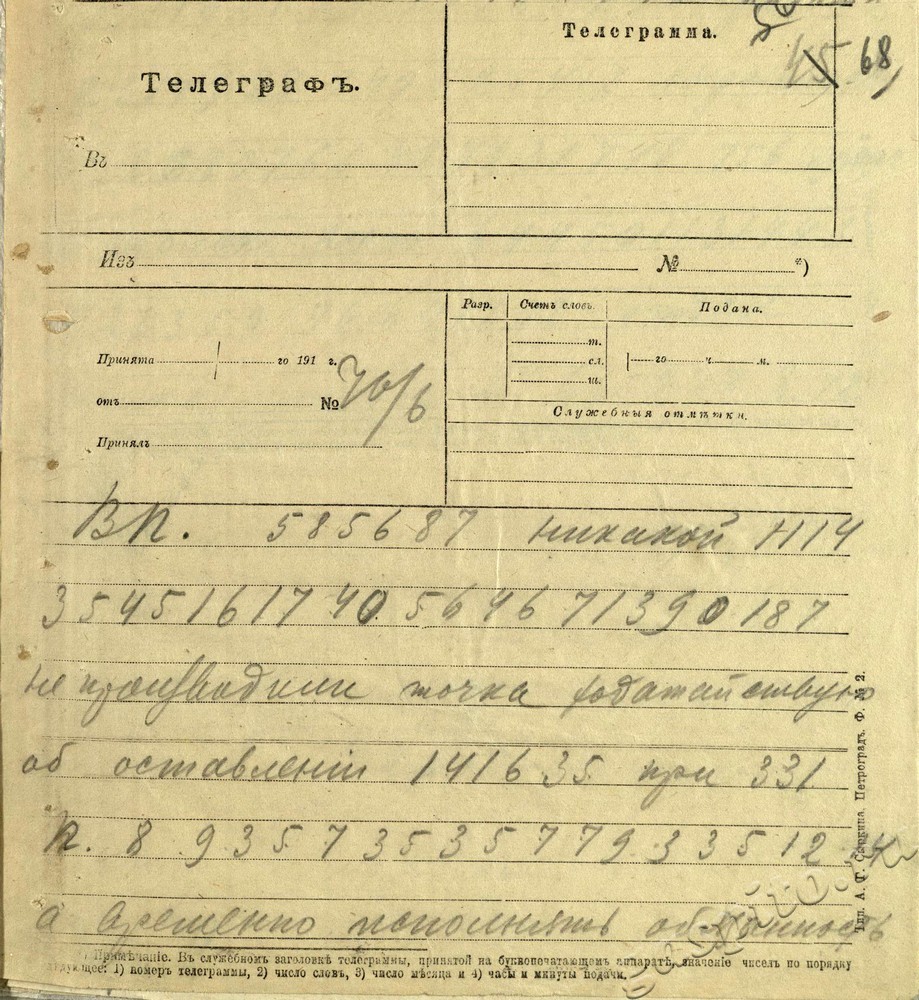 Телеграмма.
45 68
Телеграфъ.
Въ
Изъ № *)
Разр. Счетъ словъ. Подана.
т.
Принята го 191 г. сл. го ч. м.
ш.
отъ № 76/6
Служебныя отмѣтки.
Принялъ
ВП. 585687 никакой Н14
35451617 40 5646 71390 187
не производили точка ходатайствую
об оставленіи 141635 при 331
П. 8 9357353577933512
а временно исполнять об-занность
Примѣчаніе. Въ служебномъ заголовкѣ телеграммы, принятой на буквопечатающемъ аппаратѣ, значеніе чиселъ по порядку
слѣдующее: 1) номеръ телеграммы, 2) число словъ, 3) число мѣсяца и 4) часы и минуты подачи.
Тип. А. Ѳ. Сыркина. Петроградъ. Ф. № 2.